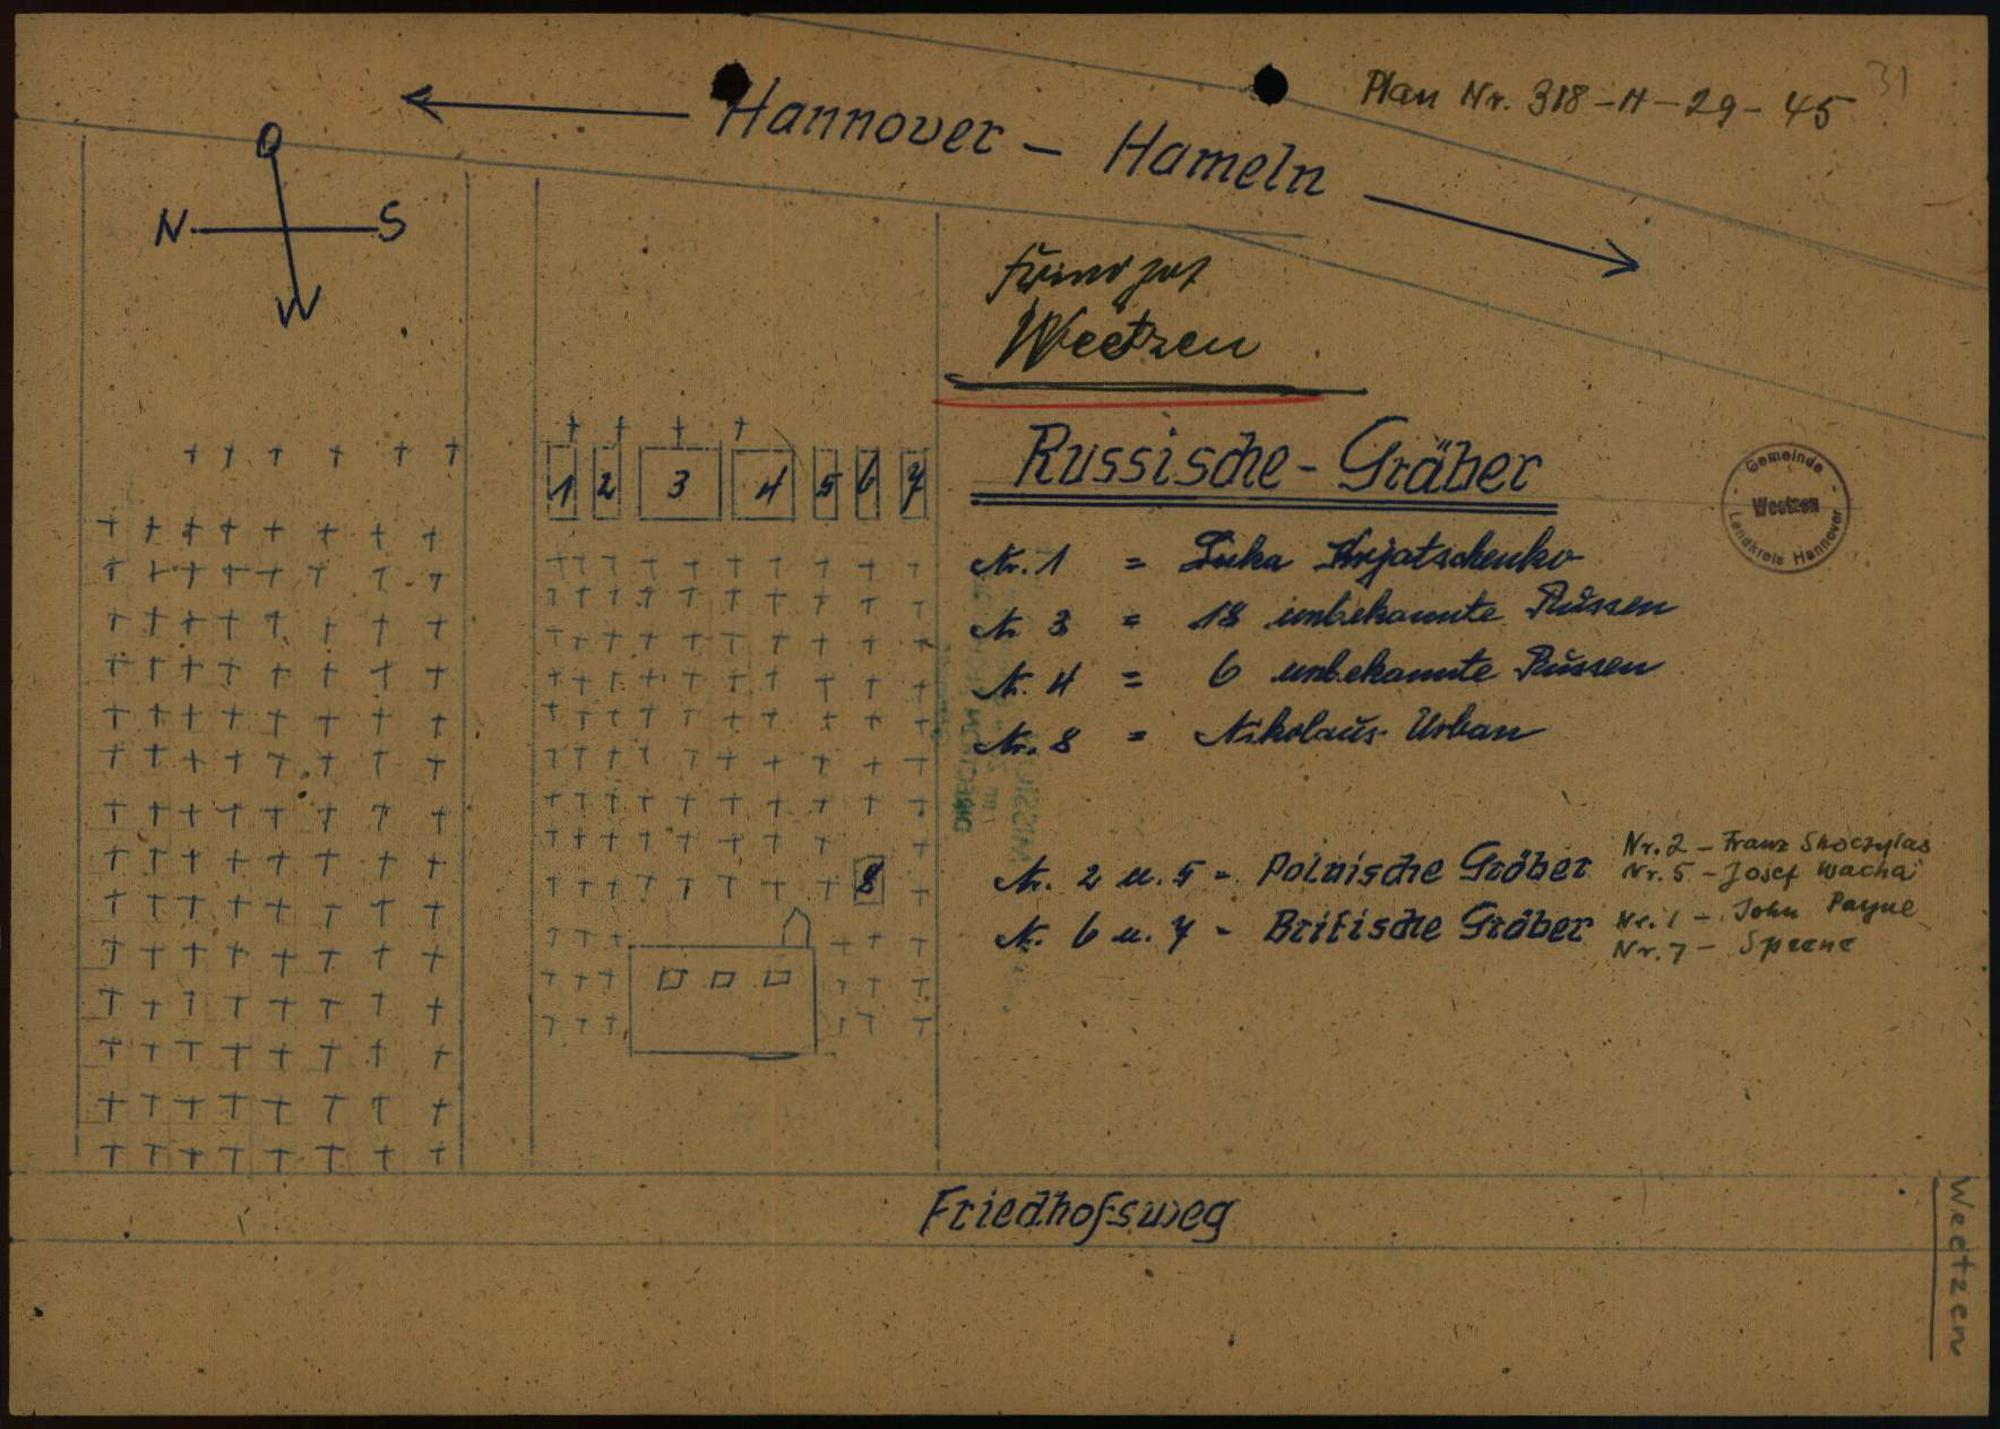 31
Plan Nr. 318-H-29-45
Hannover – Hameln
O
N S
W
Weetzen
1 2 3 4 5 6 7
8
Russische-Gräber
Gemeinde
Weetzen
Landkreis Hannover
Nr. 1 = Luka
Nr 3 = 18 unbekannte Russen
Nr. 4 = 6 unbekannte Russen
Nr. 8 = Nikolaus Urban
Nr. 2 u. 5 - Polnische Gräber
Nr. 2 - Franz Skoczylas
Nr. 5 - Josef Wacha
Nr. 6 u. 7 - Britische Gräber
Nr. 1 - John Payne
Nr. 7 -
Friedhofsweg
Weetzen